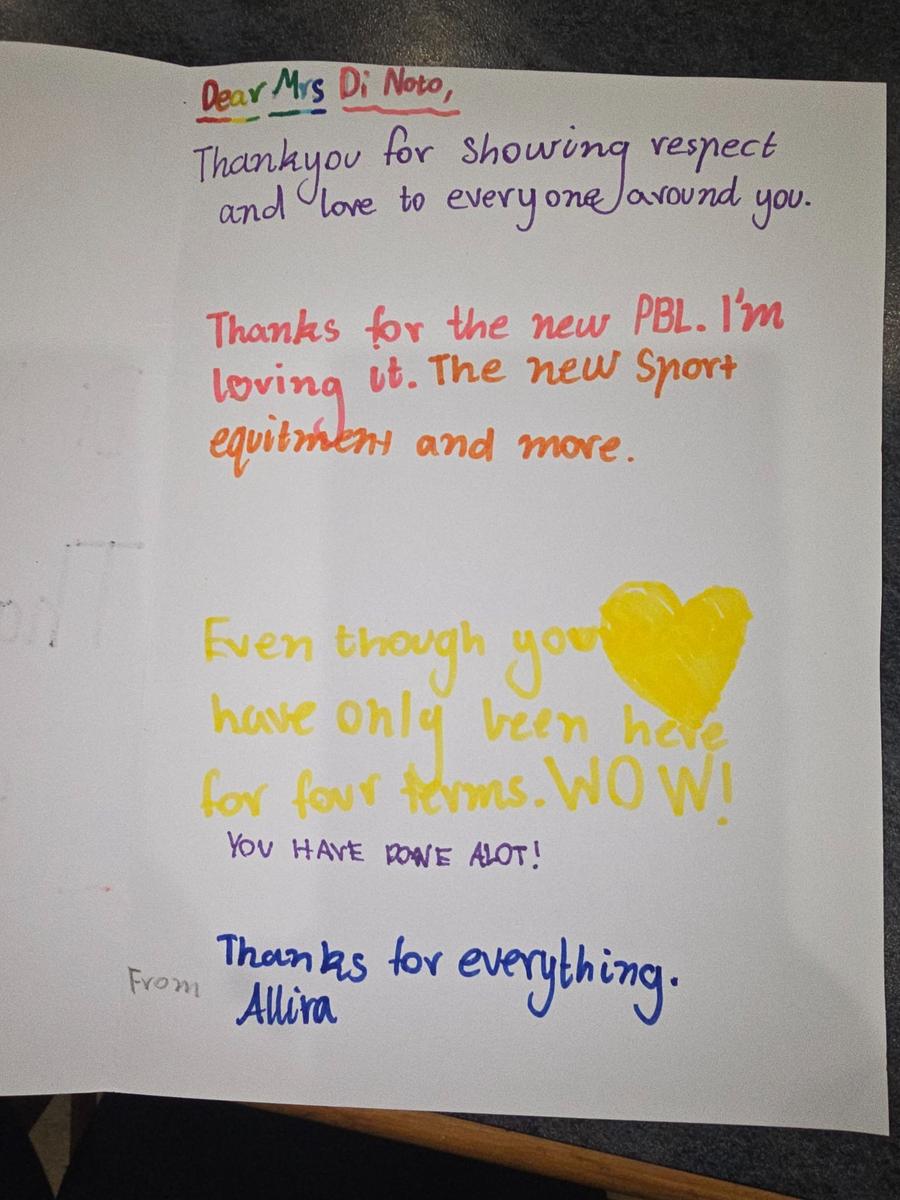 Dear Mrs Di Noto,
Thankyou for showing respect
and love to everyone around you.
Thanks for the new PBL. I'm
loving it. The new Sport
equitment and more.
Even though you
have only been here
for four terms. WOW!
YOU HAVE DONE ALOT!
Thanks for everything.
From
Allira